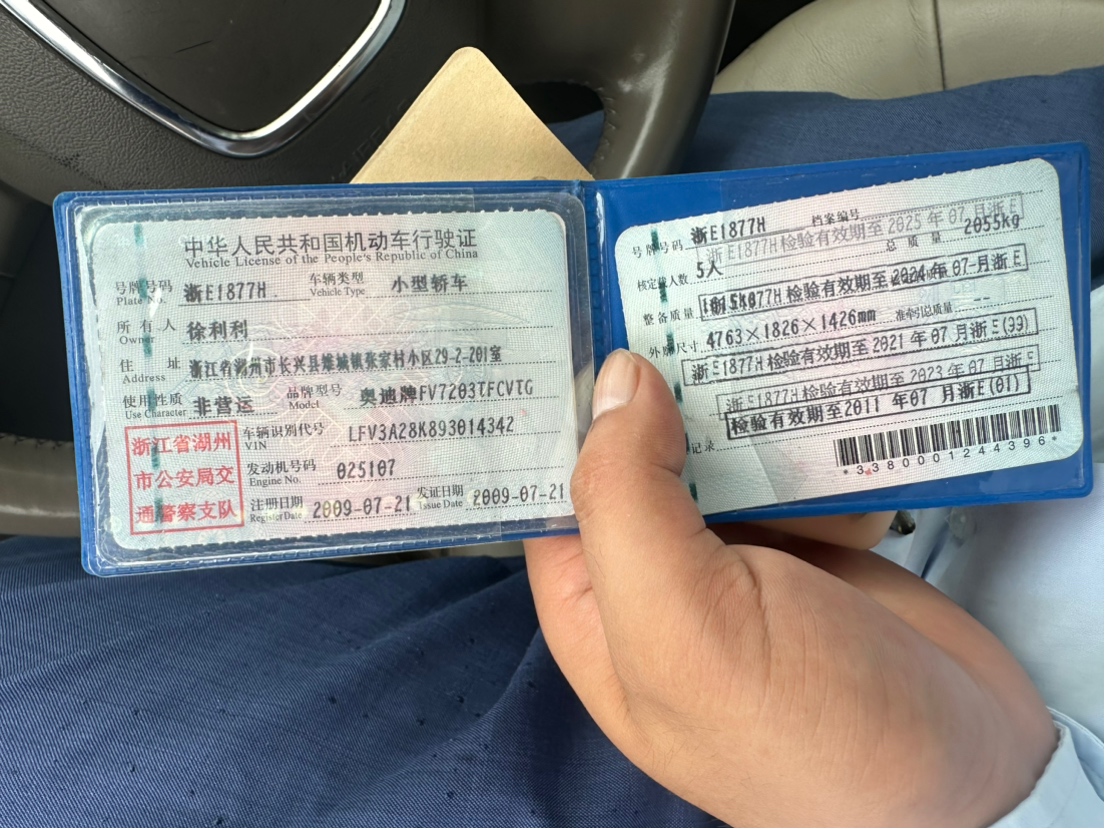 中华人民共和国机动车行驶证
Vehicle License of the People's Republic of China
号牌号码 浙E1877H 车辆类型 小型轿车
Plate No. Vehicle Type
所有人 徐利利
Owner
住址 浙江省湖州市长兴县雉城镇张家村小区29-2-201室
Address
使用性质 非营运 品牌型号 奥迪牌FV7203TFCVTG
Use Character Model
浙江省湖州市公安局交通警察支队
车辆识别代号 LFV3A28K893014342
VIN
发动机号码 025107
Engine No.
注册日期 2009-07-21 发证日期 2009-07-21
Register Date Issue Date
号牌号码 浙E1877H 档案编号
浙E1877H检验有效期至2025年07月浙E
核定载人数 5人 总质量 2055kg
整备质量
检验有效期至2024年07月浙E
外廓尺寸 4763×1826×1426mm 准牵引总质量 --
浙E1877H检验有效期至2021年07月浙E(99)
浙E1877H检验有效期至2023年07月浙E
检验有效期至2011年07月浙E(01)
记录
*3380001244396*